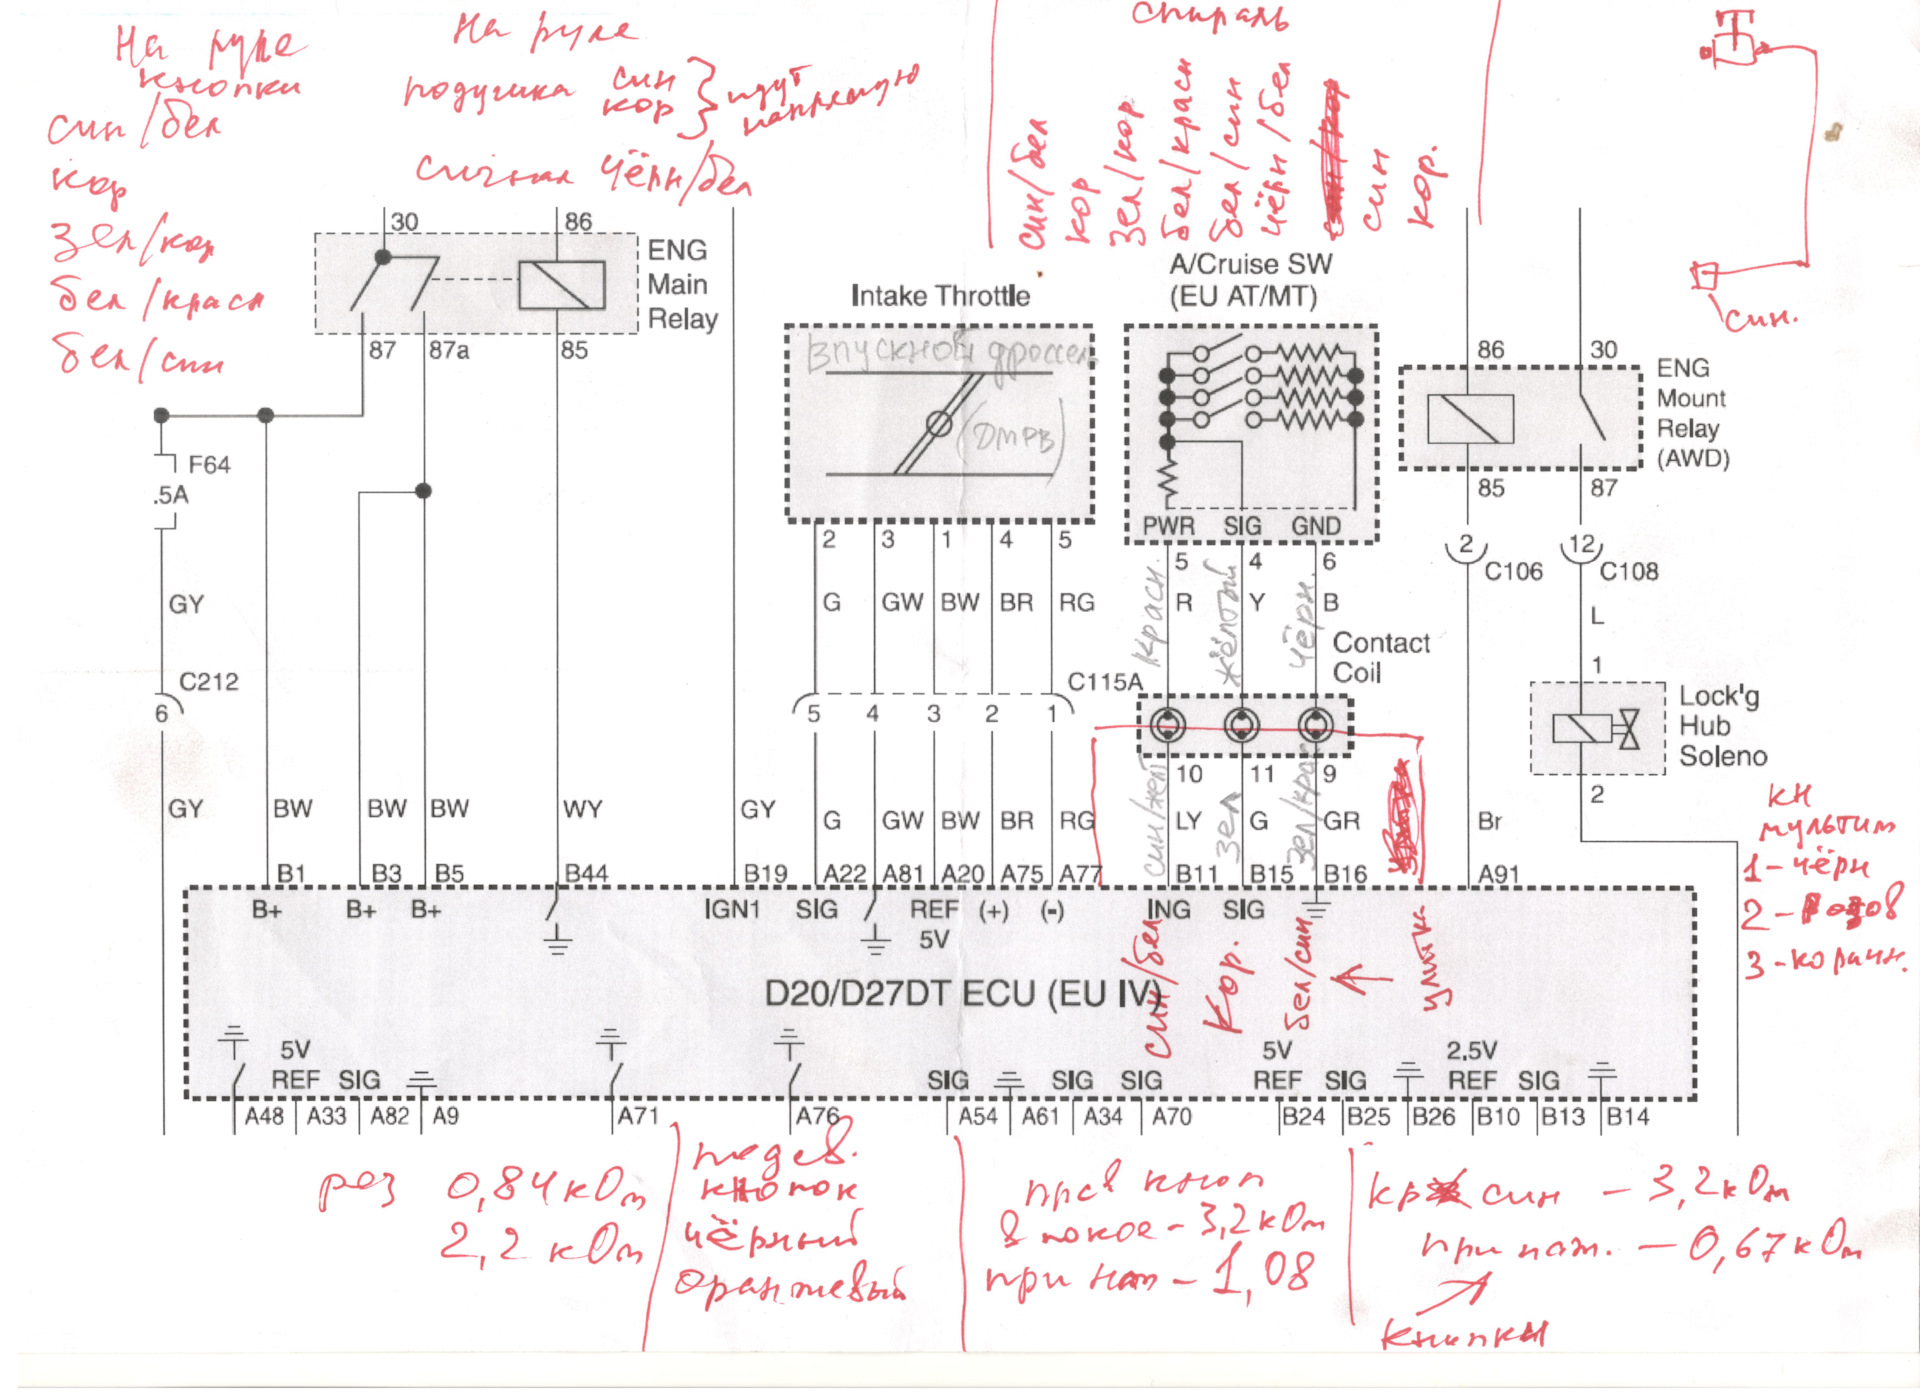 На руле
кнопки
син/бел
кор
зел/кор
бел/красн
бел/син
На руле
подушка син
кор
идут
напрямую
сигнал чёрн/бел
спираль
син/бел
кор
зел/кор
бел/красн
бел/син
чёрн/бел
син
кор.
син.
30
86
ENG
Main
Relay
87
87a
85
Intake Throttle
Впускной дроссель
(ДМРВ)
A/Cruise SW
(EU AT/MT)
PWR SIG GND
86
30
ENG
Mount
Relay
(AWD)
85
87
F64
.5A
2 3 1 4 5
5 4 6
2 C106
12 C108
GY
G GW BW BR RG
красн.
R
жёлтый
Y
чёрн.
B
L
Contact
Coil
C212
6
C115A
5 4 3 2 1
1
Lock'g
Hub
Soleno
2
10 11 9
GY BW BW BW WY GY G GW BW BR RG
син/жел
LY
зел
G
зел/кра
GR
Br
B1 B3 B5 B44 B19 A22 A81 A20 A75 A77 B11 B15 B16 A91
B+ B+ B+ IGN1 SIG REF (+) (-) ING SIG
5V
кн
мультим
1-чёрн
2-розов
3-коричн.
D20/D27DT ECU (EU IV)
син/бел
Кор.
бел/син
улитк.
5V
REF SIG
SIG SIG SIG
5V
REF SIG
2.5V
REF SIG
A48 A33 A82 A9 A71 A76 A54 A61 A34 A70 B24 B25 B26 B10 B13 B14
рез 0,84кОм
2,2 кОм
кнопок
чёрный
оранжевый
прав кноп
в покое - 3,2кОм
при наж - 1,08
син - 3,2кОм
при наж. - 0,67кОм
кнопки